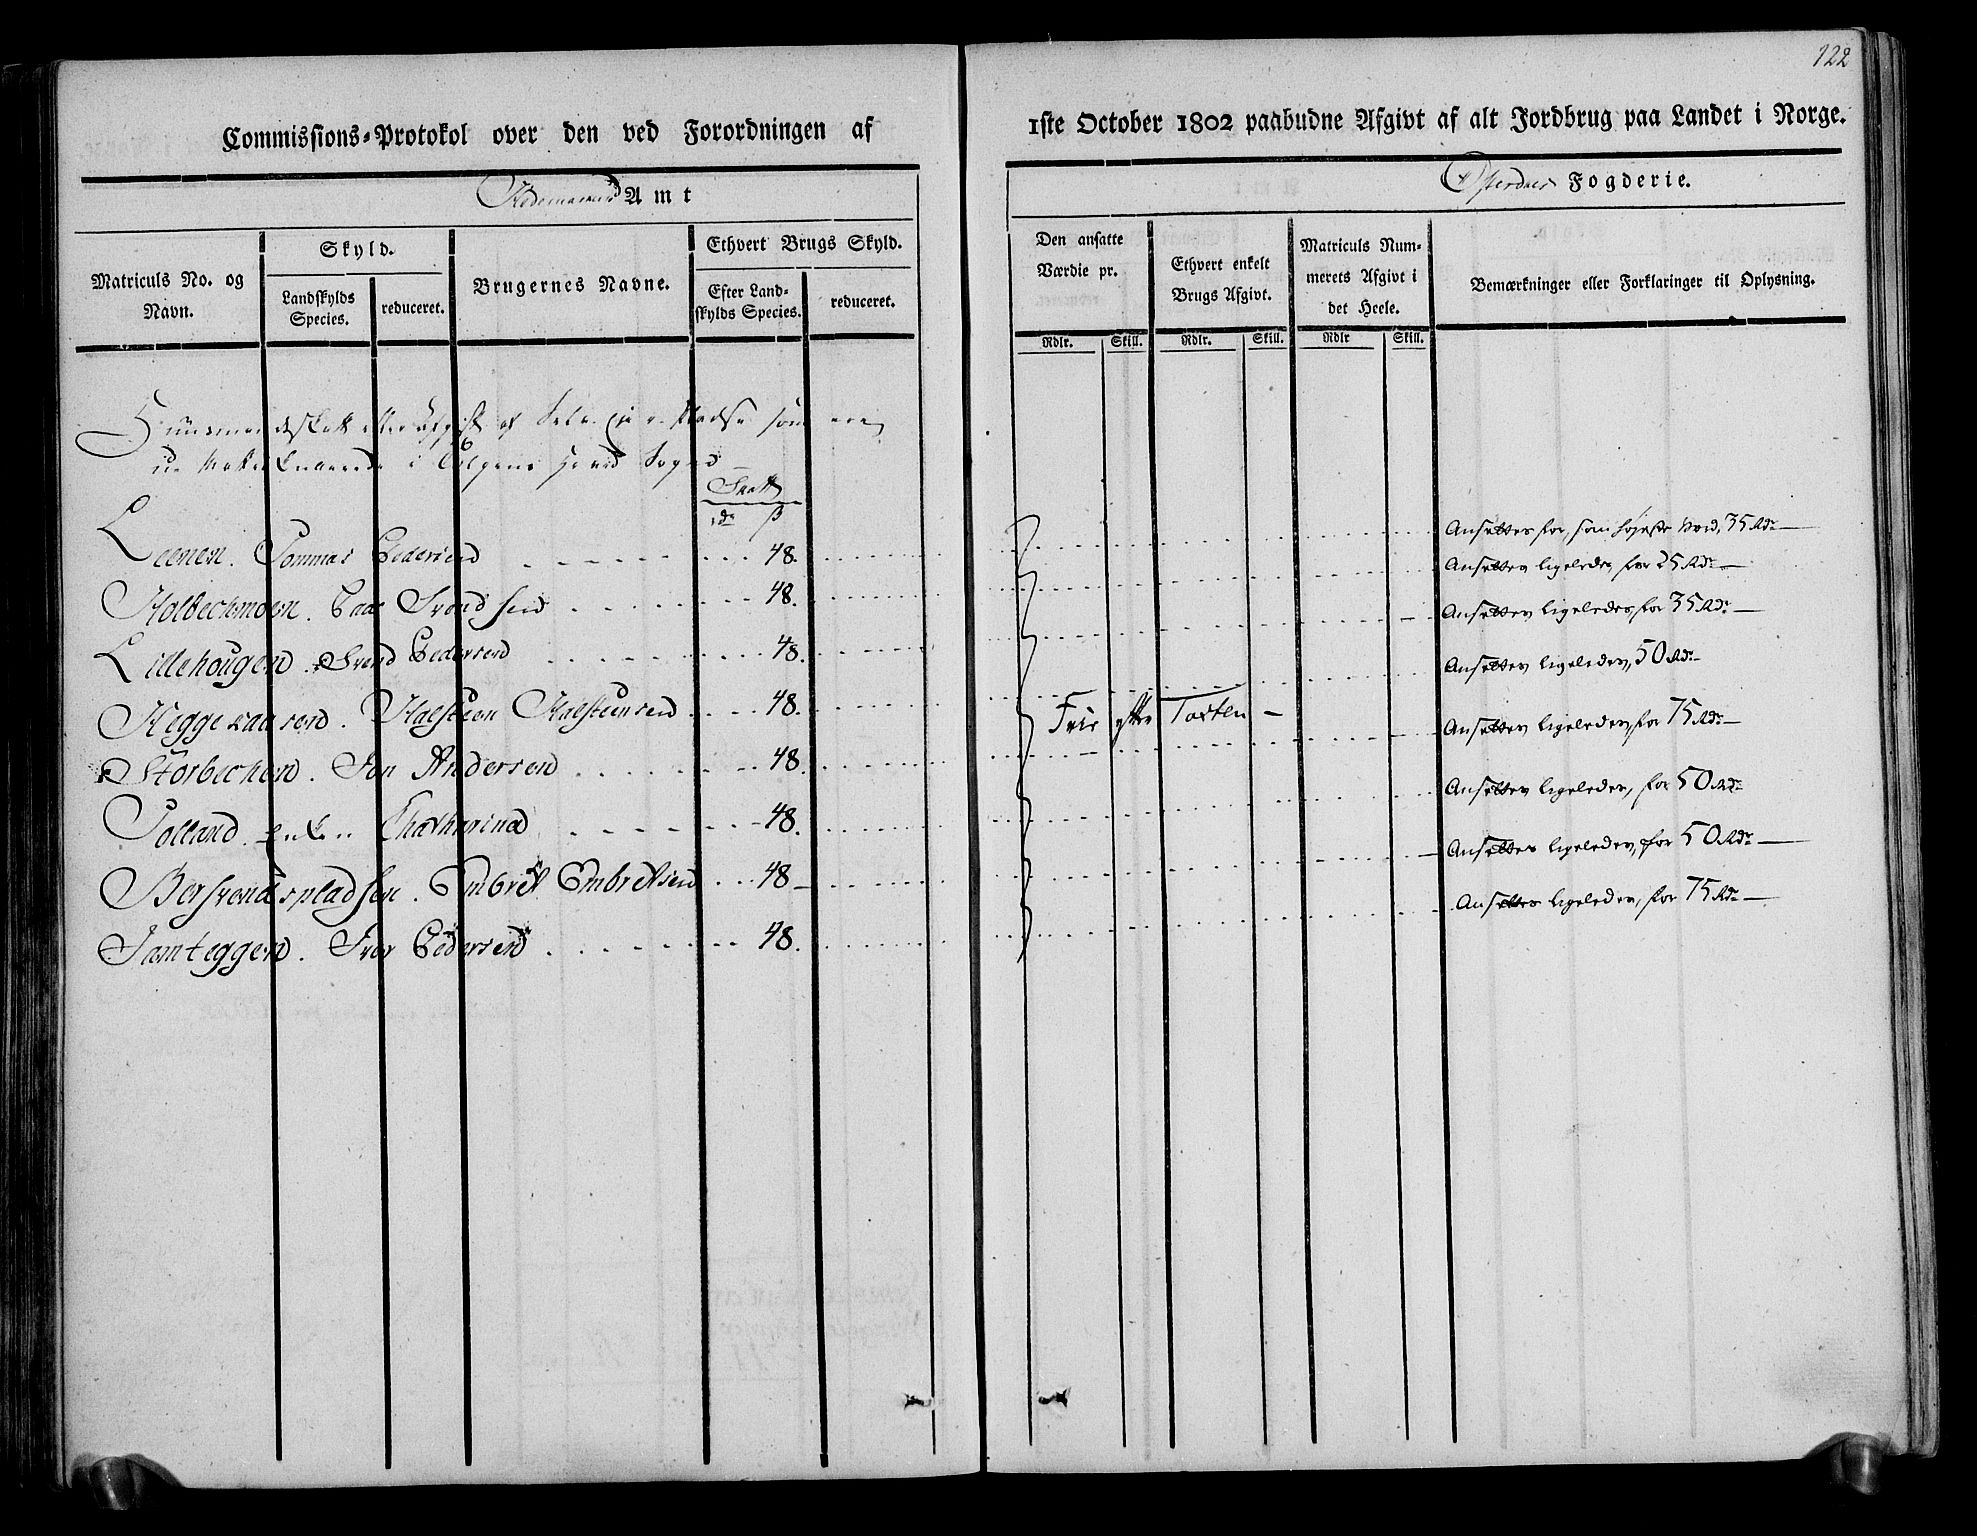 122
Commissions-Protokol over den ved Forordningen af
1ste October 1802 paabudne Afgivt af alt Jordbrug paa Landet i Norge.
Hedemarkens Amt
Østerdals Fogderie.
Matriculs No. og Navn.
Skyld.
Landskylds Species.
reduceret.
Brugernes Navne.
Ethvert Brugs Skyld.
Efter Landskylds Species.
reduceret.
Den ansatte Værdie pr.
Rdlr. Skill.
Ethvert enkelt Brugs Afgivt.
Rdlr. Skill.
Matriculs Nummerets Afgivt i det Heele.
Rdlr Skill.
Bemærkninger eller Forklaringer til Oplysning.
Huusmandskatt eller Afgift af Pladse som ere
i Tolgens Sogn
Skatt
rdr ß
Leenen. Tommas Pedersen 48. Ansettes for, som høyeste Værd, 35 Rdr
Holbechmoen. Svendsen 48. Ansettes ligeledes for 25 Rdr
Lillehougen. Svend Pedersen 48. Ansettes ligeledes for 35 Rdr
Heggeraasen. Halsteen Halsteensen 48. Ansettes ligeledes, 50 Rdr
Storbechen. Jon Andersen 48. Frie efter Ansettes ligeledes, for 75 Rdr
Tolland. Enken Chatharina 48. Ansettes ligeledes, for 50 Rdr
Bersvendspladsen. Embret Embretsen 48 Ansettes ligeledes, for 50 Rdr
Jamteggen. Iver Pedersen 48. Ansettes ligeledes, for 75 Rdr